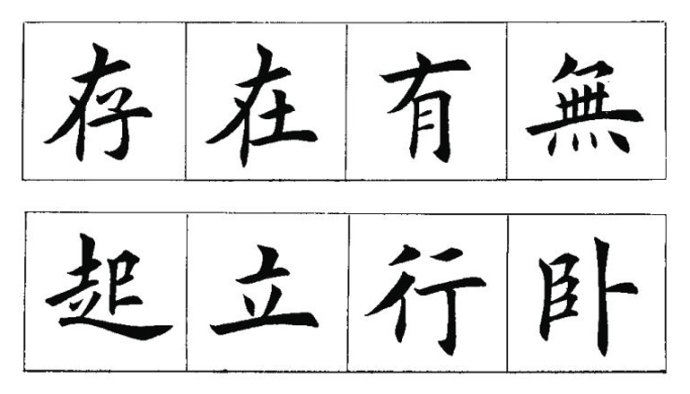 存在有無
起立行卧